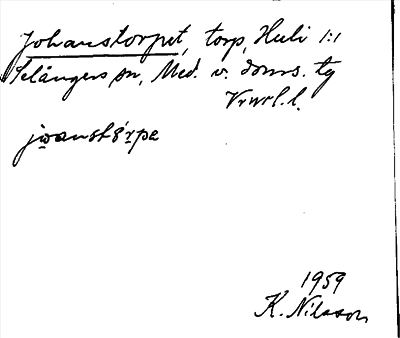 Johanstorpet, torp, Huli 1:1
Selångers sn, Med. v. doms. tg
Vrwrl.l.
jωanstårpe
1959
K. Nilsson